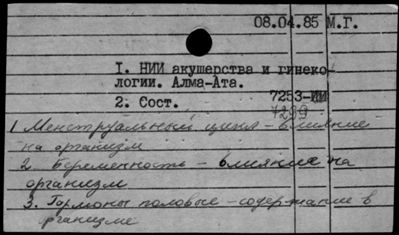 08.04.85 М.Г.
I. НИИ акушерства и гинеко-
логии. Алма-Ата.
2. Сост. 7253-ИИ
7239
1 Менструальный цикл - влияние
на организм
2. Беременность - влияние на
организм
3. Гормоны половые - содержание в
рганизме